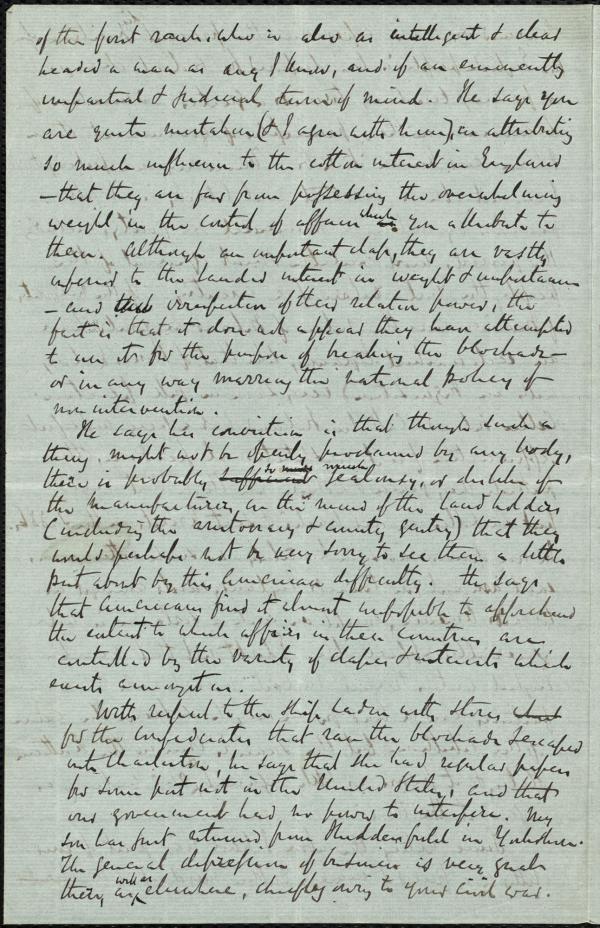 of the first rank, who is also as intelligent & clear
headed a man as any I know, and of an eminently
impartial & judicial turn of mind. He says you
are quite mistaken (& I agree with him) in attributing
so much influence to the cotton interest in England
– that they are far from possessing the overwhelming
weight in the control of affairs which you attribute to
them. Although an important class, they are vastly
inferior to the landed interest in weight & importance
– and irrespective of their relative power, the
fact is that it does not appear they have attempted
to use it for the purpose of breaking the blockade –
or in any way marring the national policy of
non intervention.
He says his conviction is that though such a
thing might not be openly proclaimed by any body,
there is probably so much jealousy, or dislike of
the manufacturers, in the minds of the landholders
(including the aristocracy & county gentry) that they
would perhaps not be very sorry to see them a little
put about by this American difficulty. He says
that Americans find it almost impossible to apprehend
the extent to which affairs in these countries are
controlled by the variety of classes & interests which
exists amongst us.
With respect to the ship laden with stores
for the confederates that ran the blockade & escaped
into Charleston, he says that she had regular papers
for some port not in the United States, and that
our government had no power to interfere. My
son has just returned from Huddersfield in Yorkshire.
The general depression of business is very great
there, as well as elsewhere, chiefly owing to your civil war.